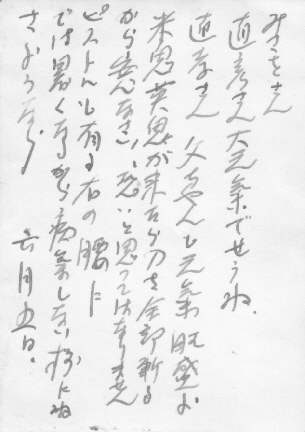 みさをさん
直彦さん大元気でせうね。
直孝さん 父ちゃんも元気旺盛よ
米鬼英鬼が来たら刀で全部斬る
から安心なさい、恐いと思ってはなりません
ピストルも有る右の腰に
では暑くなるから病気しない様にね
さようなら
六月五日。